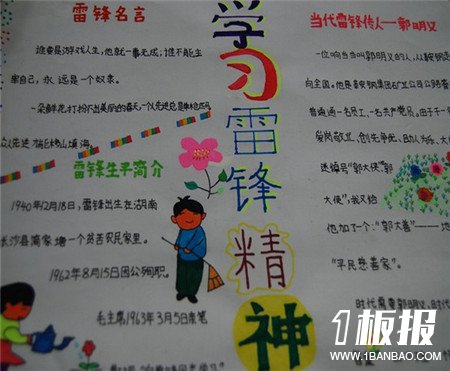 雷锋名言
谁要是游戏人生,他就一事无成;谁不能主
宰自己,永远是一个奴隶。
一朵鲜花打扮不出美丽的春天,一个人先进总是单枪匹马
众人先进才能移山填海。
雷锋生平简介
1940年12月18日,雷锋出生在湖南
长沙县简家塘一个贫苦农民家里。
1962年8月15日因公殉职。
毛主席1963年3月5日亲笔
学习雷锋精神
当代雷锋传人——郭明义
一位响当当叫郭明义的人,从鞍钢
向全国。他是鞍钢集团矿业公司公路
普通通一名员工,一名共产党员。由于
爱岗敬业,创先争优,助人为乐,
送绰号"郭大侠",我
大使",我又给
他加了个:"郭大善"——
"平民慈善家"。
时代尊重郭明义,时代
1板报
WWW.1BANBAO.COM